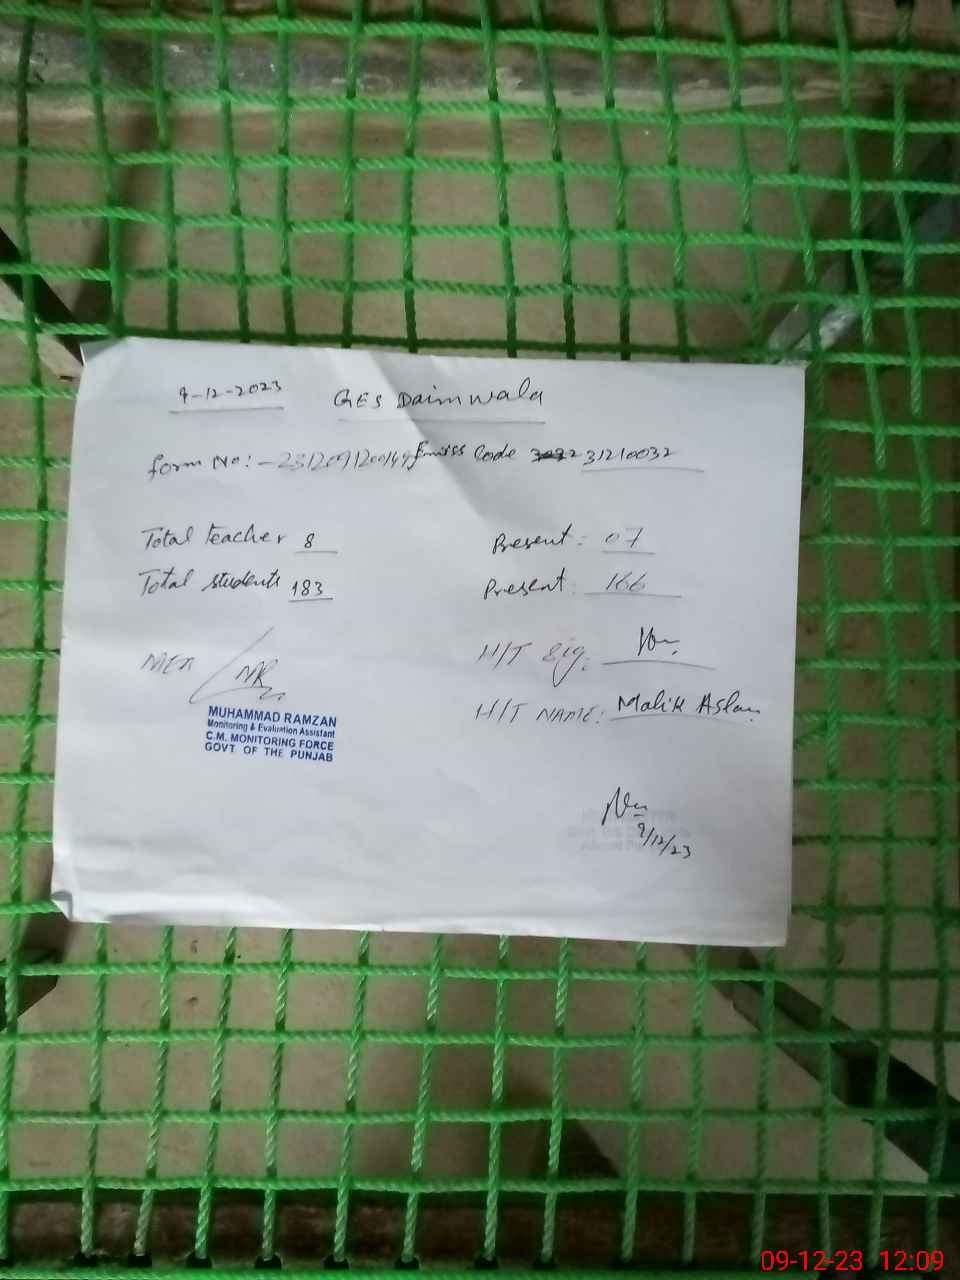 9-12-2023 GES Daimwala
form No:- 231209120049 Emiss Code 31210032
Total teacher 8 Present: 07
Total students 183 Present: 166
MEA MR H/T sig:
MUHAMMAD RAMZAN
Monitoring & Evaluation Assistant
C.M. MONITORING FORCE
GOVT OF THE PUNJAB
H/T NAME: Malik Aslam
9/12/23
09-12-23 12:09